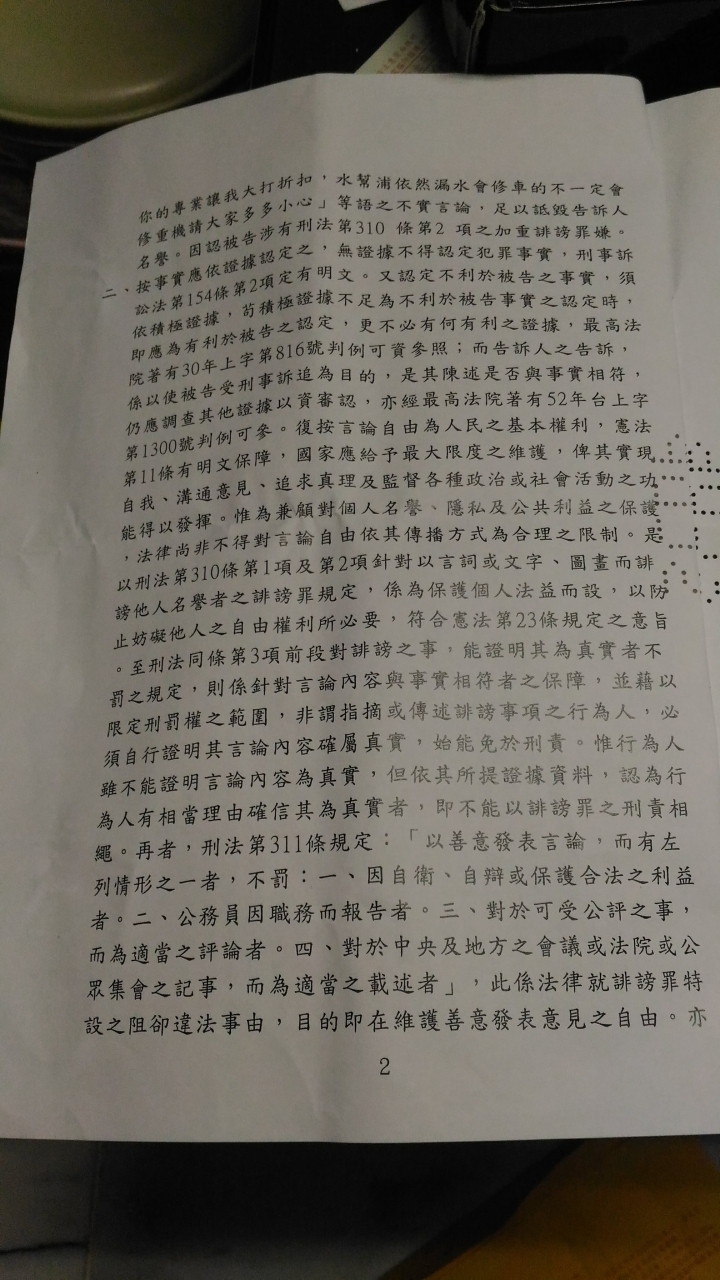 你的專業讓我大打折扣，水幫浦依然漏水會修車的不一定會
修重機請大家多多小心」等語之不實言論，足以詆毀告訴人
名譽。因認被告涉有刑法第310 條第2 項之加重誹謗罪嫌。
二、按事實應依證據認定之，無證據不得認定犯罪事實，刑事訴
訟法第154條第2項定有明文。又認定不利於被告之事實，須
依積極證據，苟積極證據不足為不利於被告事實之認定時，
即應為有利於被告之認定，更不必有何有利之證據，最高法
院著有30年上字第816號判例可資參照；而告訴人之告訴，
係以使被告受刑事訴追為目的，是其陳述是否與事實相符，
仍應調查其他證據以資審認，亦經最高法院著有52年台上字
第1300號判例可參。復按言論自由為人民之基本權利，憲法
第11條有明文保障，國家應給予最大限度之維護，俾其實現
自我、溝通意見、追求真理及監督各種政治或社會活動之功
能得以發揮。惟為兼顧對個人名譽、隱私及公共利益之保護
，法律尚非不得對言論自由依其傳播方式為合理之限制。是
以刑法第310條第1項及第2項針對以言詞或文字、圖畫而誹
謗他人名譽者之誹謗罪規定，係為保護個人法益而設，以防
止妨礙他人之自由權利所必要，符合憲法第23條規定之意旨
。至刑法同條第3項前段對誹謗之事，能證明其為真實者不
罰之規定，則係針對言論內容與事實相符者之保障，並藉以
限定刑罰權之範圍，非謂指摘或傳述誹謗事項之行為人，必
須自行證明其言論內容確屬真實，始能免於刑責。惟行為人
雖不能證明言論內容為真實，但依其所提證據資料，認為行
為人有相當理由確信其為真實者，即不能以誹謗罪之刑責相
繩。再者，刑法第311條規定：「以善意發表言論，而有左
列情形之一者，不罰：一、因自衛、自辯或保護合法之利益
者。二、公務員因職務而報告者。三、對於可受公評之事，
而為適當之評論者。四、對於中央及地方之會議或法院或公
眾集會之記事，而為適當之載述者」，此係法律就誹謗罪特
設之阻卻違法事由，目的即在維護善意發表意見之自由。亦
2